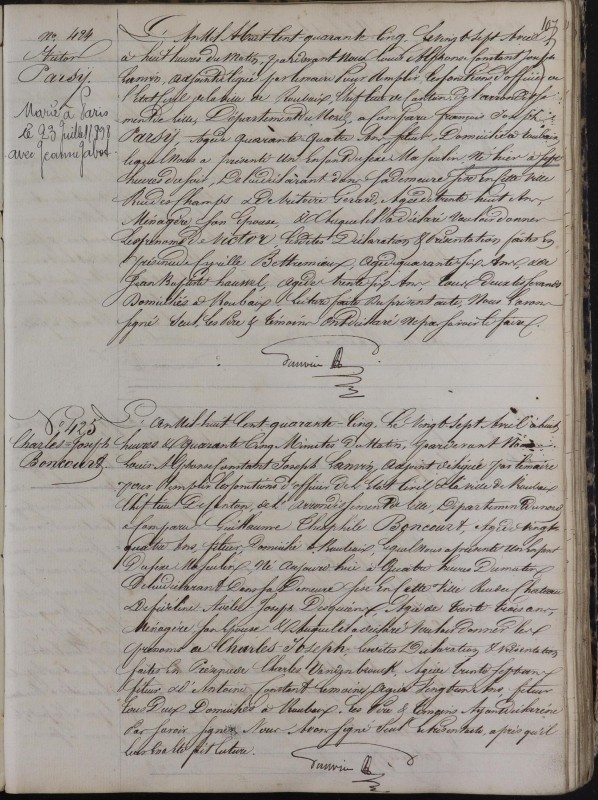 107
No. 424
Victor
Parsy.
Marié à Paris
le 23 juillet 1898
avec Jeanne Jabot
L'An Mil huit cent quarante Cinq, le vingt Sept Avril
à huit heures du Matin, pardevant Nous Louis Alphonse Constant Joseph
Lanvin, adjoint délégué par le maire pour remplir les fonctions d'officier de
l'Etat Civil de la ville de Roubaix, Chef lieu de Canton, de l'arrondisse-
ment de Lille, Département du Nord, a comparu François Joseph
Parsy, Agé de quarante Quatre Ans, Domicilié à Roubaix
lequel Nous a présenté Un Enfant du sexe Masculin, Né hier à Sept
heures du soir, De lui déclarant dans sa demeure sise en cette ville
Rue des Champs & De Victoire Gerard, Agée de trente huit Ans
Ménagère son Epouse, & Auquel il a déclaré vouloir donner
les prénoms de Victor, Lesdites Déclaration & Présentation faites en
présence de Cyrille Bettremieux, Agé de quarante six Ans, & de
Jean Baptiste Agé de trente six Ans, tous Deux
Domiciliés à Roubaix. Lecture faite Du présent acte, Nous l'avons
signé Seul, les Père & témoins ont déclaré ne pas savoir le faire.
Lanvin
No. 425
Charles-Joseph
Boncourt
L'An Mil huit Cent quarante-Cinq, Le vingt Sept Avril à huit
heures & quarante Cinq Minutes du Matin, Pardevant Nous
Louis Alphonse Constant Joseph Lanvin, adjoint délégué par le maire
pour Remplir les fonctions d'officier de l'Etat Civil de la ville de Roubaix
Chef lieu De Canton, de l'arrondissement de Lille, Département du nord
a Comparu Guillaume Théophile Boncourt, Agé de vingt
quatre Ans, fileur, Domicilié à Roubaix, lequel Nous a présenté Un Enfant
Du sexe Masculin, Né Aujourd'hui à Quatre heures Du matin
De lui déclarant Dans sa Demeure sise en Cette Ville Rue du Chateau
& De Joseph Agée de Trente trois ans,
Ménagère son Epouse & Auquel il a déclaré vouloir donner les
prénoms de Charles Joseph, Lesdites Déclaration & Présentation
faites En Présence de Charles Agé de trente Sept ans
fileur & d'Antoine Constant Lemaire, Agé de Vingt un Ans, fileur
tous Deux Domiciliés à Roubaix. Les Père & témoins Ayant déclaré ne
Pas savoir signer, Nous Avons signé Seul le Présent acte, après qu'il
leur En a été fait lecture.
Lanvin